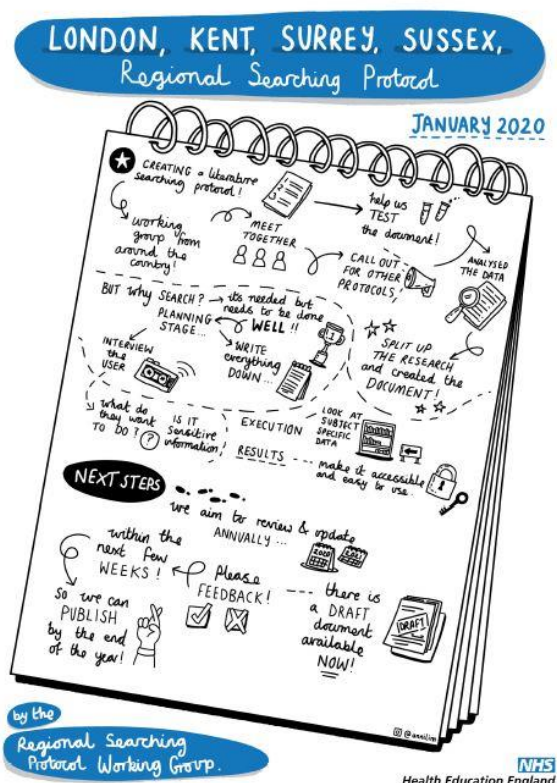 LONDON, KENT, SURREY, SUSSEX,
Regional Searching Protocol
JANUARY 2020
CREATING a literature
searching protocol!
1
2
3
help us
TEST
the document!
working
group from
around the
country!
MEET
TOGETHER
CALL OUT
FOR OTHER
PROTOCOLS,
ANALYSED
THE DATA
BUT why SEARCH? → its needed but
needs to be done
WELL !!
PLANNING
STAGE...
1
INTERVIEW
the
USER
WRITE
everything
DOWN...
SPLIT UP
THE RESEARCH
and created the
DOCUMENT!
what do
they want
TO DO?
?
IS IT
sensitive
information!
EXECUTION
LOOK AT
SUBJECT
SPECIFIC
DATA
RESULTS
make it accessible
and easy to use.
NEXT STEPS
we aim to review & update
ANNUALLY...
2020
2021
within the
next few
WEEKS!
Please
FEEDBACK!
so we can
PUBLISH
by the end
of the year!
there is
a DRAFT
document
available
NOW!
DRAFT
@annilim
by the
Regional Searching
Protocol Working Group.
NHS
Health Education England